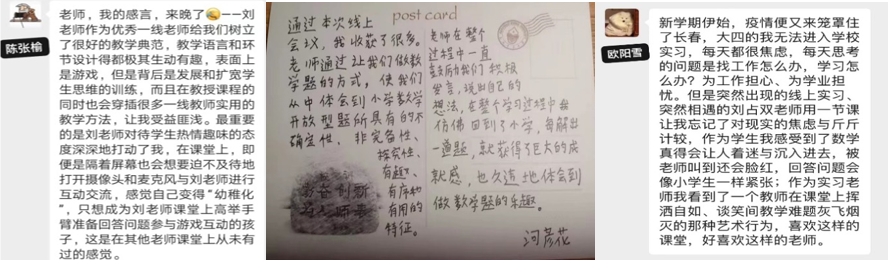 陈张榆
老师，我的感言，来晚了——刘
老师作为优秀一线老师给我们树立
了很好的教学典范，教学语言和环
节设计得都极其生动有趣，表面上
是游戏，但是背后是发展和扩宽学
生思维的训练，而且在教授课程的
同时也会穿插很多一线教师实用的
教学方法，让我受益匪浅。最重要
的是刘老师对待学生热情趣味的态
度深深地打动了我，在课堂上，即
便是隔着屏幕也会想要迫不及待地
打开摄像头和麦克风与刘老师进行
互动交流，感觉自己变得“幼稚化
”，只想成为刘老师课堂上高举手
臂准备回答问题参与游戏互动的孩
子，这是在其他老师课堂上从未有
过的感觉。
post card
通过本次线上
会议，我收获了很多。
老师通过让我们做数
学题的方式，使我们
从中体会到小学数学
开放型题所具有的不
确定性、非完备性、
探究性、
有趣、
有序和
有用的
特征。
老师在整个
过程中一直
鼓励我们积极
发言，说出自己的
想法，在整个学习过程中我
仿佛回到了小学，每解出
一道题，就获得了巨大的成
就感，也久违地体会到
做数学题的乐趣。
欧阳雪
新学期伊始，疫情便又来笼罩住
了长春，大四的我无法进入学校
实习，每天都很焦虑，每天思考
的问题是找工作怎么办，学习怎
么办？为工作担心、为学业担
忧。但是突然出现的线上实习、
突然相遇的刘占双老师用一节课
让我忘记了对现实的焦虑与斤斤
计较，作为学生我感受到了数学
真得会让人着迷与沉入进去，被
老师叫到还会脸红，回答问题会
像小学生一样紧张；作为实习老
师我看到了一个教师在课堂上挥
洒自如、谈笑间教学难题灰飞烟
灭的那种艺术行为，喜欢这样的
课堂，好喜欢这样的老师。